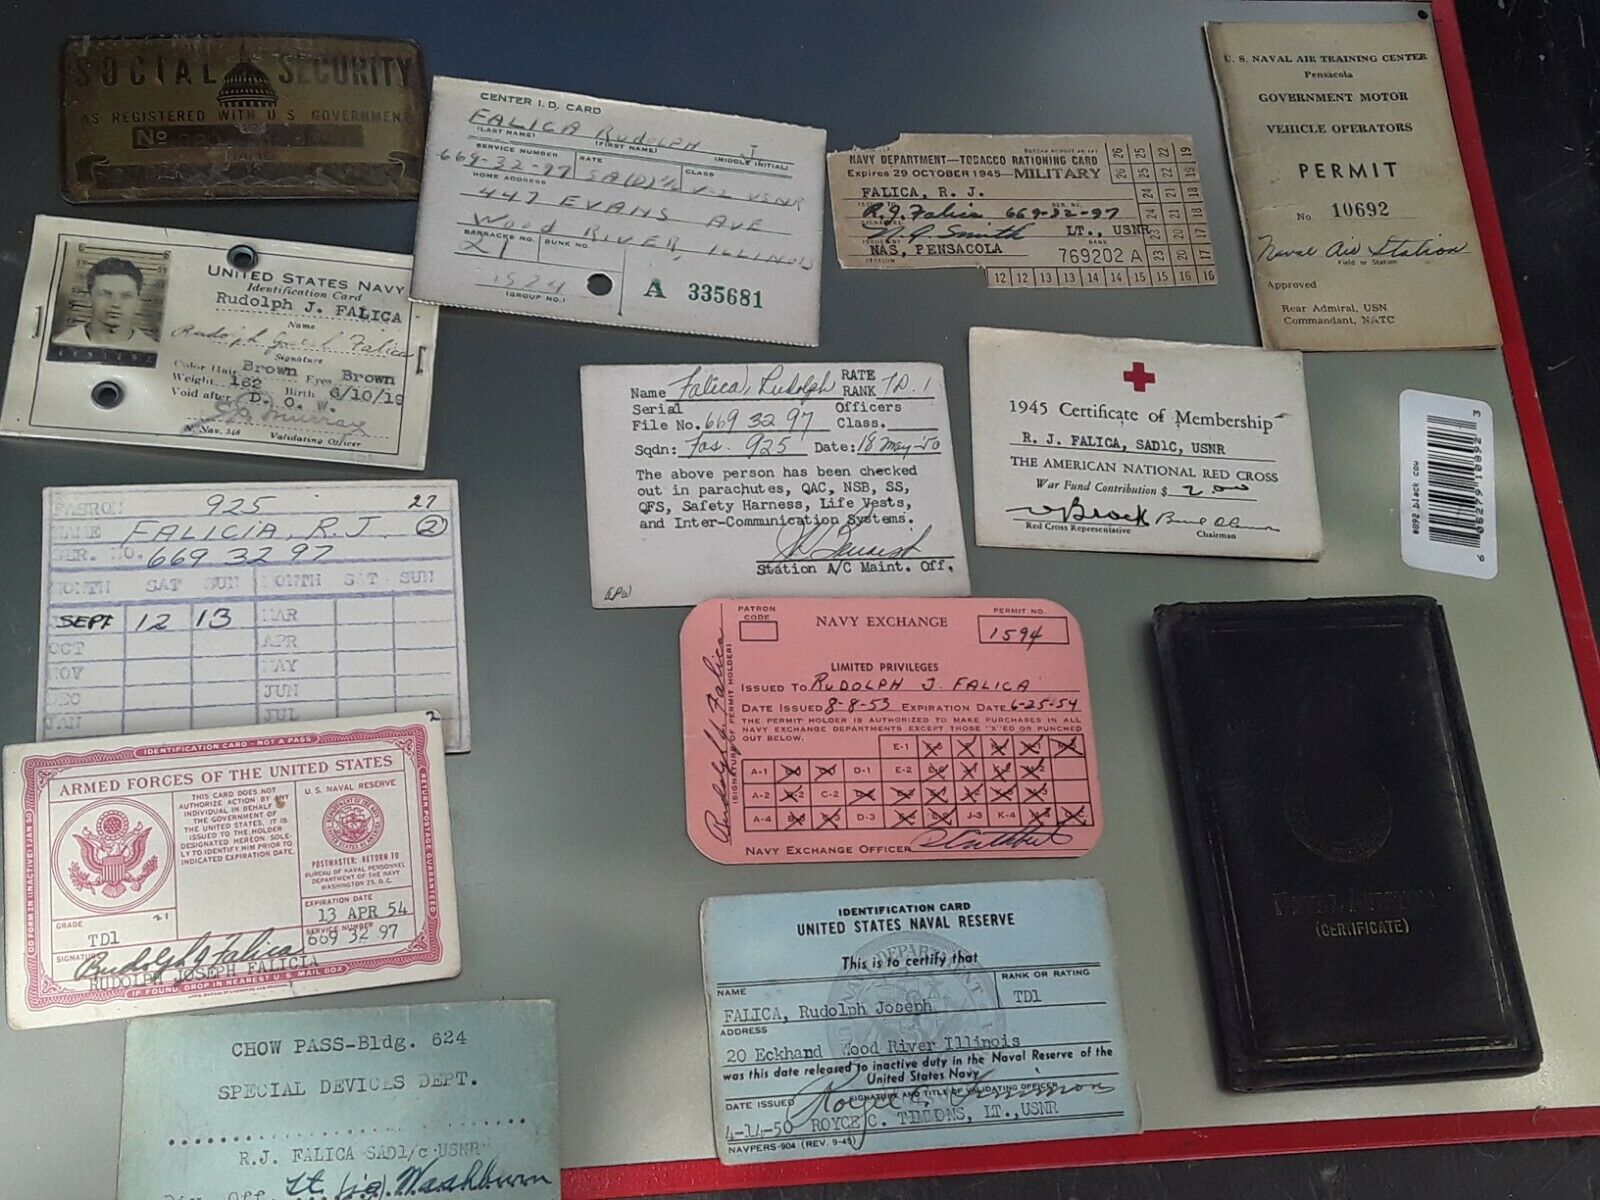 SOCIAL SECURITY
AS REGISTERED WITH U S GOVERNMENT
No
NAME
CENTER I. D. CARD
FALICA RUDOLPH J
(LAST NAME) (FIRST NAME) (MIDDLE INITIAL)
SERVICE NUMBER RATE CLASS
669-32-97 V-2 USNR
HOME ADDRESS
447 EVANS AVE
WOOD RIVER, ILLINOIS
BARRACKS NO. BUNK NO.
21
1524
(GROUP NO.)
A 335681
NAVY DEPARTMENT—TOBACCO RATIONING CARD
Expires 29 OCTOBER 1945—MILITARY
FALICA, R. J.
ISSUED TO SER. NO.
R. J. Falica 669-32-97
SIGNATURE
LT., USNR
ISSUED BY RANK
NAS, PENSACOLA 769202 A
STATION
26 25 22 19
26 25 22 19
24 21 18
24 21 18
23 20 17
23 20 17
12 12 13 13 14 14 15 15 16 16
U. S. NAVAL AIR TRAINING CENTER
Pensacola
GOVERNMENT MOTOR
VEHICLE OPERATORS
PERMIT
No. 10692
Naval Air Station
Field or Station
Approved
Rear Admiral, USN
Commandant, NATC
UNITED STATES NAVY
Identification Card
Rudolph J. FALICA
Name
Rudolph Joseph Falica
Signature
Color Hair Brown Eyes Brown
Weight 162 Birth 6/10/19
Void after D. O. W.
N. Nav. 546 Validating Officer
Name Falica, Rudolph RATE RANK TD. 1
Serial File No. 669 32 97 Officers Class.
Sqdn: Fas. 925 Date: 18 May-50
The above person has been checked
out in parachutes, QAC, NSB, SS,
QFS, Safety Harness, Life Vests,
and Inter-Communication Systems.
Station A/C Maint. Off.
1945 Certificate of Membership
R. J. FALICA, SAD1C, USNR
THE AMERICAN NATIONAL RED CROSS
War Fund Contribution $ 2.00
Red Cross Representative Chairman
#892 black cou
6 05279 10892 3
FASRON 925 27
NAME FALICIA, R.J. 2
SER. NO. 669 32 97
MONTH SAT SUN MONTH SAT SUN
SEPT 12 13 MAR
OCT APR
NOV MAY
DEC JUN
JAN JUL
NAVY EXCHANGE
PATRON CODE
PERMIT NO. 1594
LIMITED PRIVILEGES
ISSUED TO RUDOLPH J. FALICA
DATE ISSUED 8-8-53 EXPIRATION DATE 6-25-54
THE PERMIT HOLDER IS AUTHORIZED TO MAKE PURCHASES IN ALL
NAVY EXCHANGE DEPARTMENTS EXCEPT THOSE "X'ED OR PUNCHED
OUT BELOW.
E-1
A-1 D-1 E-2
A-2 C-2
A-4 D-3 J-3 K-4
NAVY EXCHANGE OFFICER
Rudolph J. Falica
(SIGNATURE OF PERMIT HOLDER)
2
IDENTIFICATION CARD - NOT A PASS
ARMED FORCES OF THE UNITED STATES
THIS CARD DOES NOT
AUTHORIZE ACTION BY AN
INDIVIDUAL IN BEHALF
OF THE GOVERNMENT OF
THE UNITED STATES. IT IS
ISSUED TO THE HOLDER
DESIGNATED HEREON SOLE-
LY TO IDENTIFY HIM PRIOR TO
INDICATED EXPIRATION DATE.
U. S. NAVAL RESERVE
POSTMASTER: RETURN TO
BUREAU OF NAVAL PERSONNEL
DEPARTMENT OF THE NAVY
WASHINGTON 25, D.C.
EXPIRATION DATE
13 APR 54
SERVICE NUMBER
669 32 97
GRADE 21
TD1
SIGNATURE
Rudolph J Falica
RUDOLPH JOSEPH FALICIA
IF FOUND, DROP IN NEAREST U. S. MAIL BOX
RETURN POSTAGE GUARANTEED
IDENTIFICATION CARD
UNITED STATES NAVAL RESERVE
This is to certify that
NAME RANK OR RATING
FALICA, Rudolph Joseph TD1
ADDRESS
20 Eckhand Wood River Illinois
was this date released to inactive duty in the Naval Reserve of the
United States Navy
DATE ISSUED SIGNATURE AND TITLE OF VALIDATING OFFICER
4-14-50 ROYCE C. TIMMONS, LT., USNR
NAVPERS-904 (REV. 9-45)
(CERTIFICATE)
CHOW PASS-Bldg. 624
SPECIAL DEVICES DEPT.
R.J. FALICA SAD1/c USNR
Div. Off. Lt (jg). Washburn